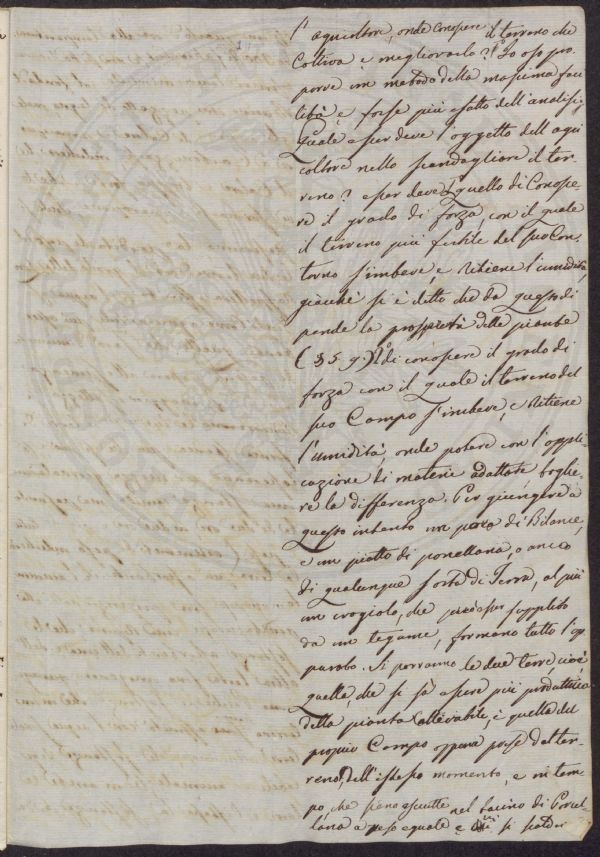 l'agricoltore, onde conoscere il terreno che
Coltiva e megliorarlo? Io oso pro,
porre un metodo della massima faci
lità, e forse più esatto dell'analisi,
Quale esser deve l'oggetto dell'agri
coltore nello scandagliare il ter-
reno? esser deve 1º quello di Conosce-
re il grado di forza, con il quale
il terreno più fertile del suo Con,
torno s'imbeve, e ritiene l'umidità,
giacchè si è detto che da questo di
pende la prosperità delle piante
(§ 5. 9.) 2º di conoscere il grado di
forza con il quale il terreno del
suo Campo s'imbeve e ritiene
l'umidità, onde potere con l'appli
cazione di materie adattate, toglie-
re la differenza. Per giungere a
questo intento un paro di Bilance,
e un piatto di porcellana, o anco
di qualunque sorte di Terra, al più
un crogiolo, che può esser supplito
da un tegame, formano tutto l'ap
parato. Si porranno le due terre cioè,
quella, che si sà essere più produttrice
della pianta allevabile, e quella del
proprio Campo appena prese dal ter-
reno, dell'istesso momento, e in tem
po che siano asciutte nel bacino di Porcel-
lana a peso eguale e si